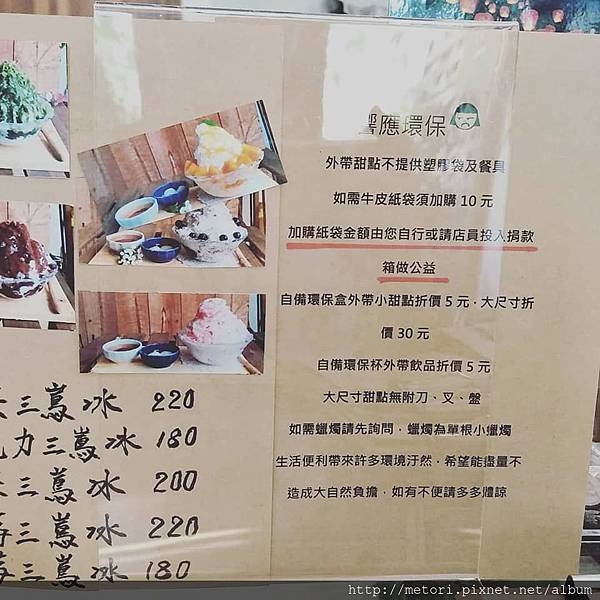 響應環保
外帶甜點不提供塑膠袋及餐具
如需牛皮紙袋須加購 10 元
加購紙袋金額由您自行或請店員投入捐款
箱做公益
自備環保盒外帶小甜點折價 5 元，大尺寸折
價 30 元
自備環保杯外帶飲品折價 5 元
大尺寸甜點無附刀、叉、盤
如需蠟燭請先詢問，蠟燭為單根小蠟燭
生活便利帶來許多環境汙然，希望能盡量不
造成大自然負擔，如有不便請多多體諒
三嶌冰 220
力三嶌冰 180
三嶌冰 200
三嶌冰 220
三嶌冰 180
http://metori.pixnet.net/album